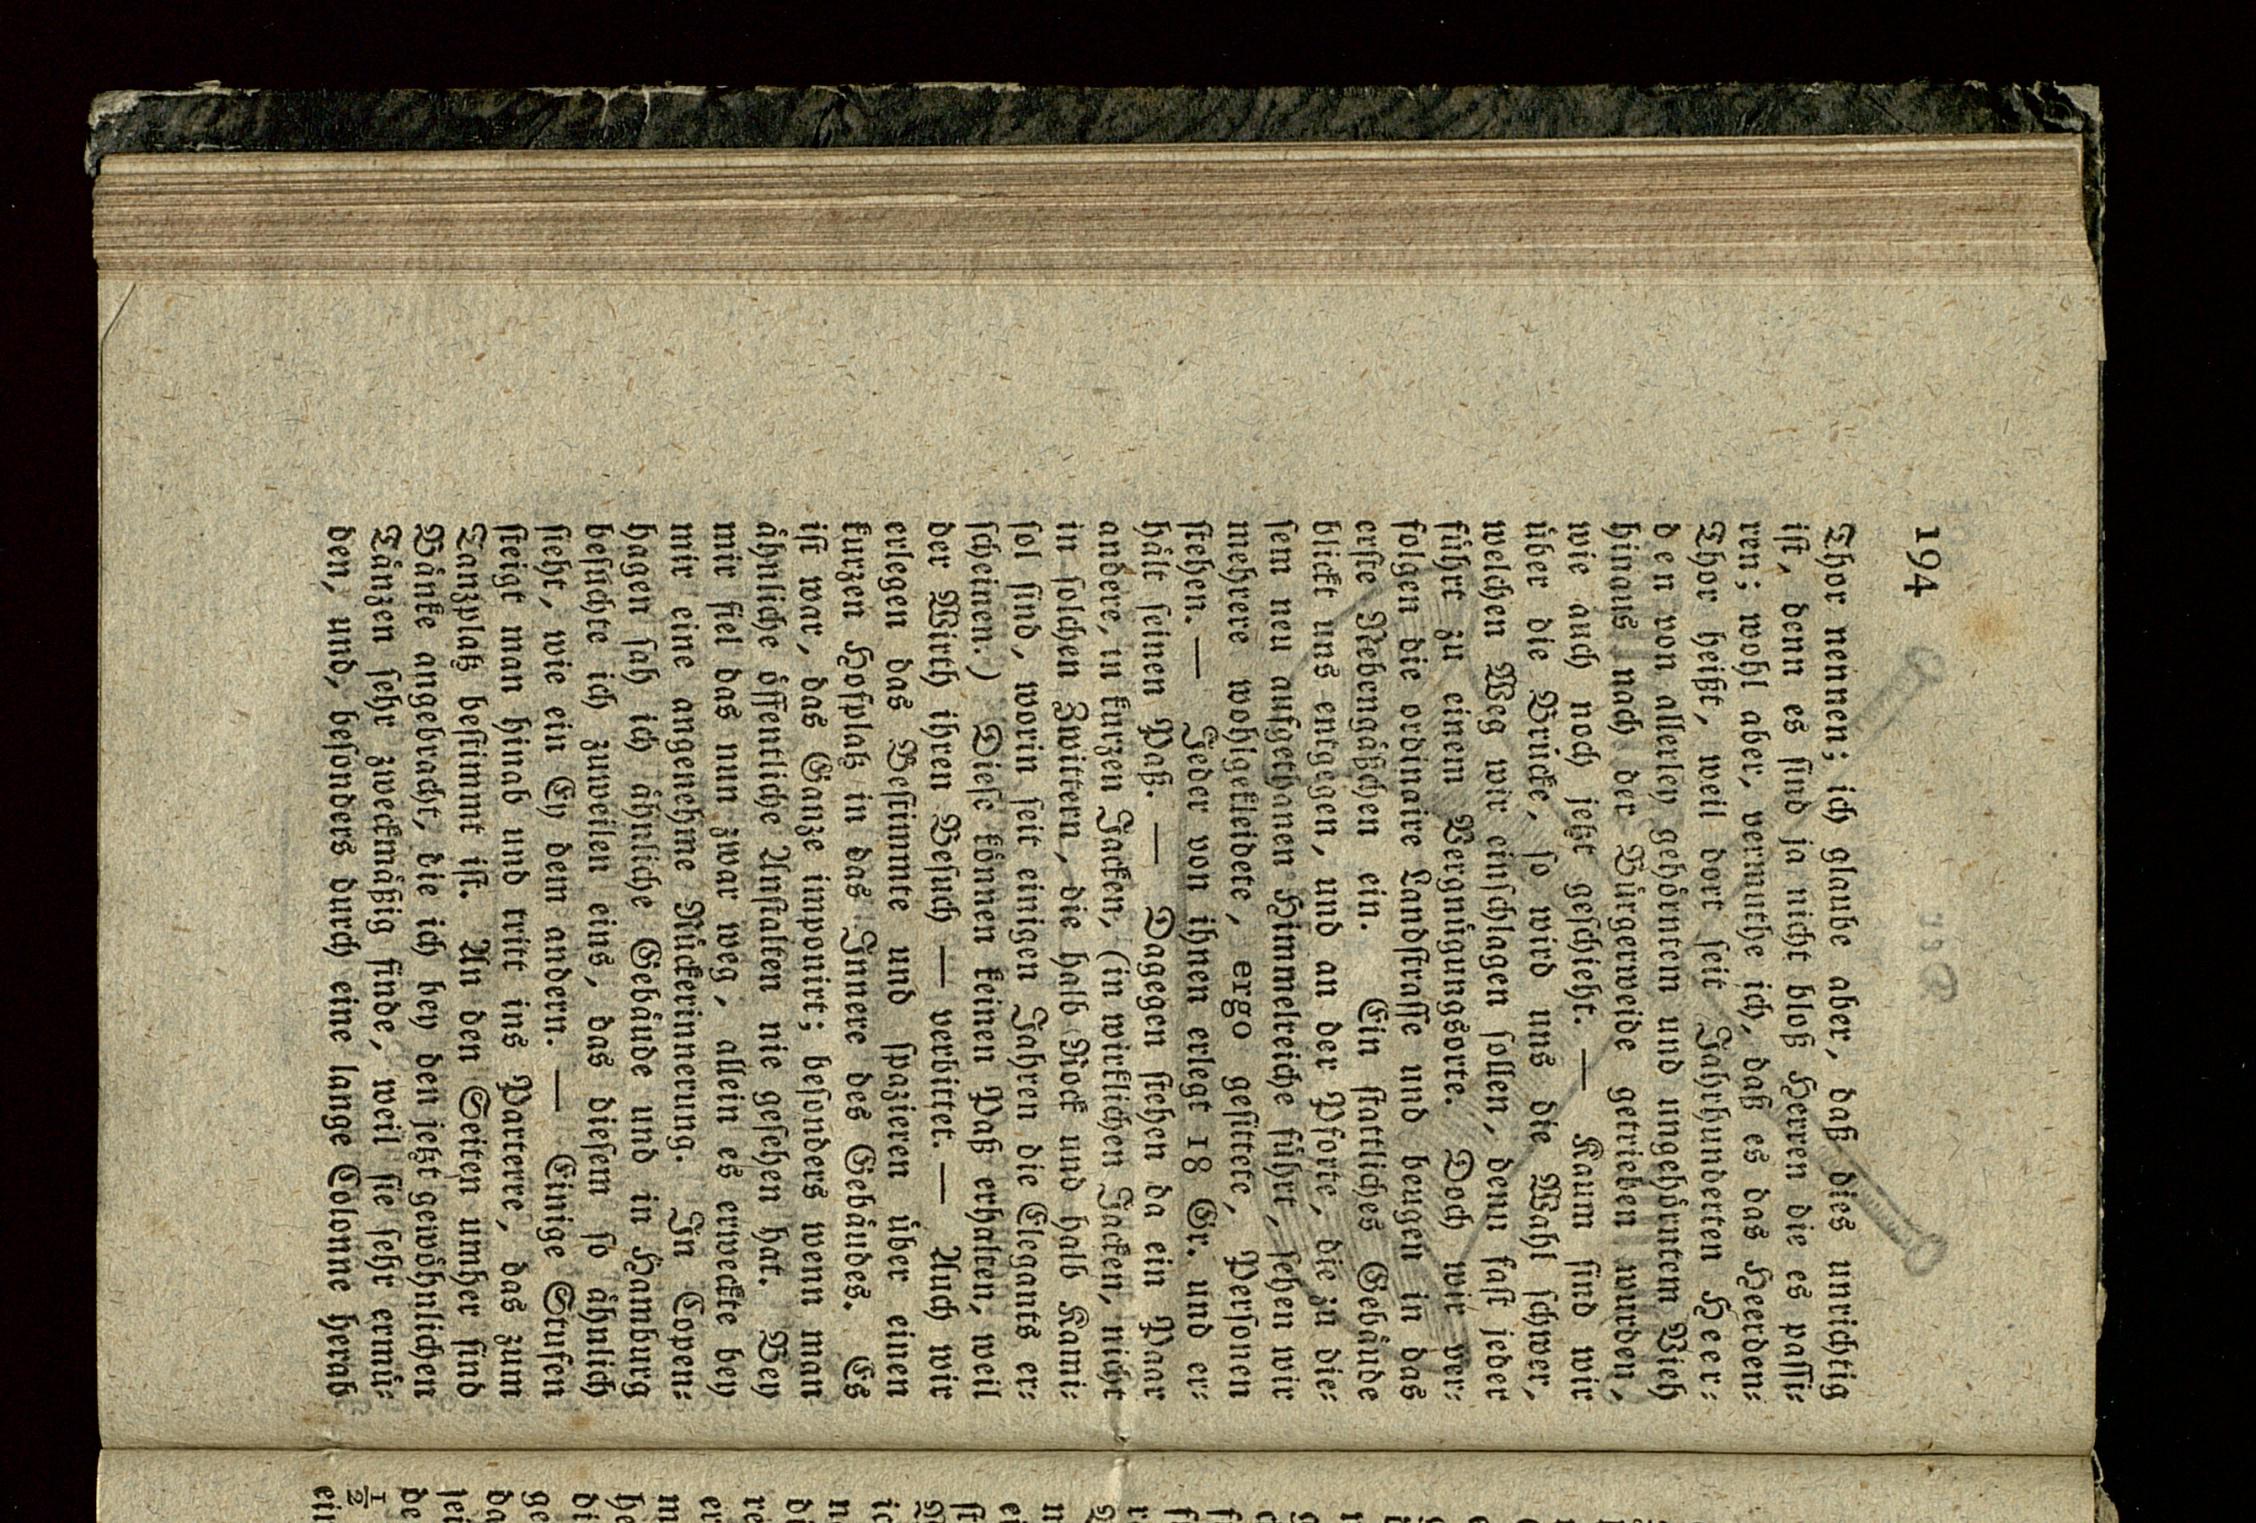 194
Thor nennen; ich glaube aber, daß dies unrichtig
ist, denn es sind ja nicht bloß Herren die es passi⸗
ren; wohl aber, vermuthe ich, daß es das Heerden⸗
Thor heißt, weil dort seit Jahrhunderten Heer⸗
den von allerley gehörntem und ungehörntem Vieh
hinaus nach der Bürgerweide getrieben wurden,
wie auch noch jetzt geschieht. — Kaum sind wir
über die Brücke, so wird uns die Wahl schwer,
welchen Weg wir einschlagen sollen, denn fast jeder
führt zu einem Vergnügungsorte. Doch wir ver⸗
folgen die ordinaire Landstrasse und beugen in das
erste Nebengäßchen ein. Ein stattliches Gebäude
blickt uns entgegen, und an der Pforte, die zu die⸗
sem neu aufgethanen Himmelreiche führt, sehen wir
mehrere wohlgekleidete, ergo gesittete, Personen
stehen. — Jeder von ihnen erlegt 18 Gr. und er⸗
hält seinen Paß. — Dagegen stehen da ein Paar
andere, in kurzen Jacken, (in wirklichen Jacken, nicht
in solchen Zwittern, die halb Rock und halb Kami⸗
sol sind, worin seit einigen Jahren die Elegants er⸗
scheinen.) Diese können keinen Paß erhalten, weil
der Wirth ihren Besuch — verbittet. — Auch wir
erlegen das Bestimmte und spazieren über einen
kurzen Hofplatz in das Innere des Gebäudes. Es
ist war, das Ganze imponirt; besonders wenn man
ähnliche öffentliche Anstalten nie gesehen hat. Bey
mir fiel das nun zwar weg, allein es erweckte bey
mir eine angenehme Rückerinnerung. In Copen⸗
hagen sah ich ähnliche Gebäude und in Hamburg
besuchte ich zuweilen eins, das diesem so ähnlich
sieht, wie ein Ey dem andern. — Einige Stufen
steigt man hinab und tritt ins Parterre, das zum
Tanzplatz bestimmt ist. An den Seiten umher sind
Bänke angebracht, die ich bey den jetzt gewöhnlichen
Tänzen sehr zweckmäßig finde, weil sie sehr ermü⸗
den, und, besonders durch eine lange Colonne herab